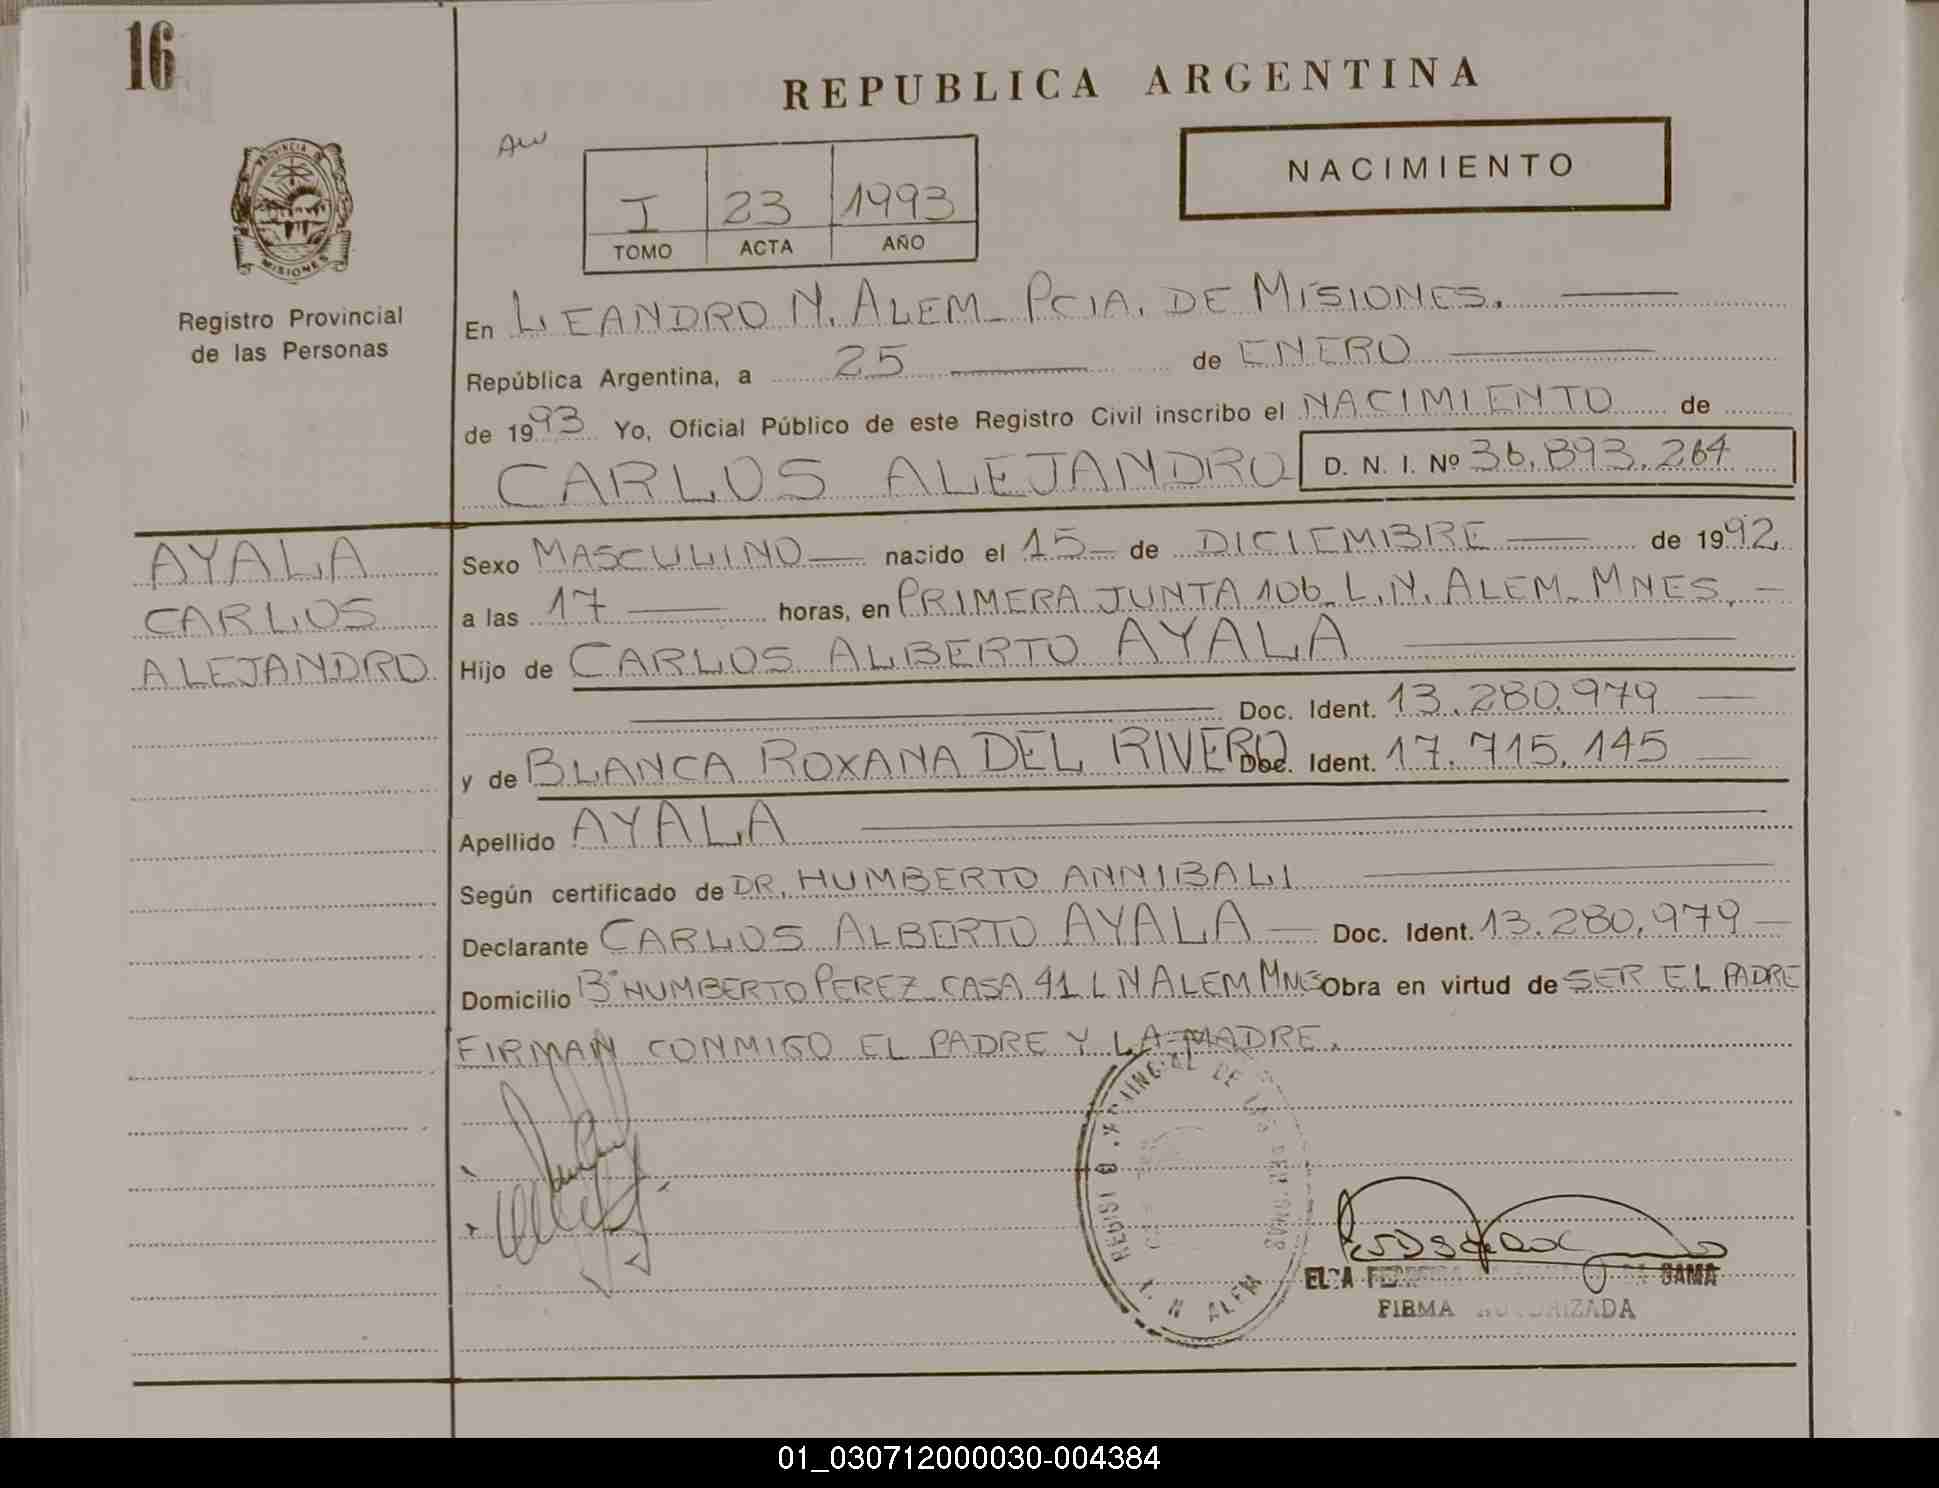 16
REPUBLICA ARGENTINA
PROVINCIA DE
MISIONES
Registro Provincial
de las Personas
NACIMIENTO
I 23 1993
TOMO ACTA AÑO
En LEANDRO N. ALEM - PCIA. DE MISIONES.
República Argentina, a 25 de ENERO
de 1993 Yo, Oficial Público de este Registro Civil inscribo el NACIMIENTO de
CARLOS ALEJANDRO D. N. I. Nº 36.893.264
AYALA
CARLOS
ALEJANDRO
Sexo MASCULINO nacido el 15 de DICIEMBRE de 1992
a las 17 horas, en PRIMERA JUNTA 106 - L.N. ALEM - MNES. -
Hijo de CARLOS ALBERTO AYALA
Doc. Ident. 13.280.979
y de BLANCA ROXANA DEL RIVERO Doc. Ident. 17.715.145
Apellido AYALA
Según certificado de DR. HUMBERTO ANNIBALI
Declarante CARLOS ALBERTO AYALA Doc. Ident. 13.280.979
Domicilio Bº HUMBERTO PEREZ CASA 41 L N ALEM MNES Obra en virtud de SER EL PADRE
FIRMAN CONMIGO EL PADRE Y LA MADRE.
DE LAS
L. N. ALEM
GAMA
FIRMA AUTORIZADA
01_030712000030-004384